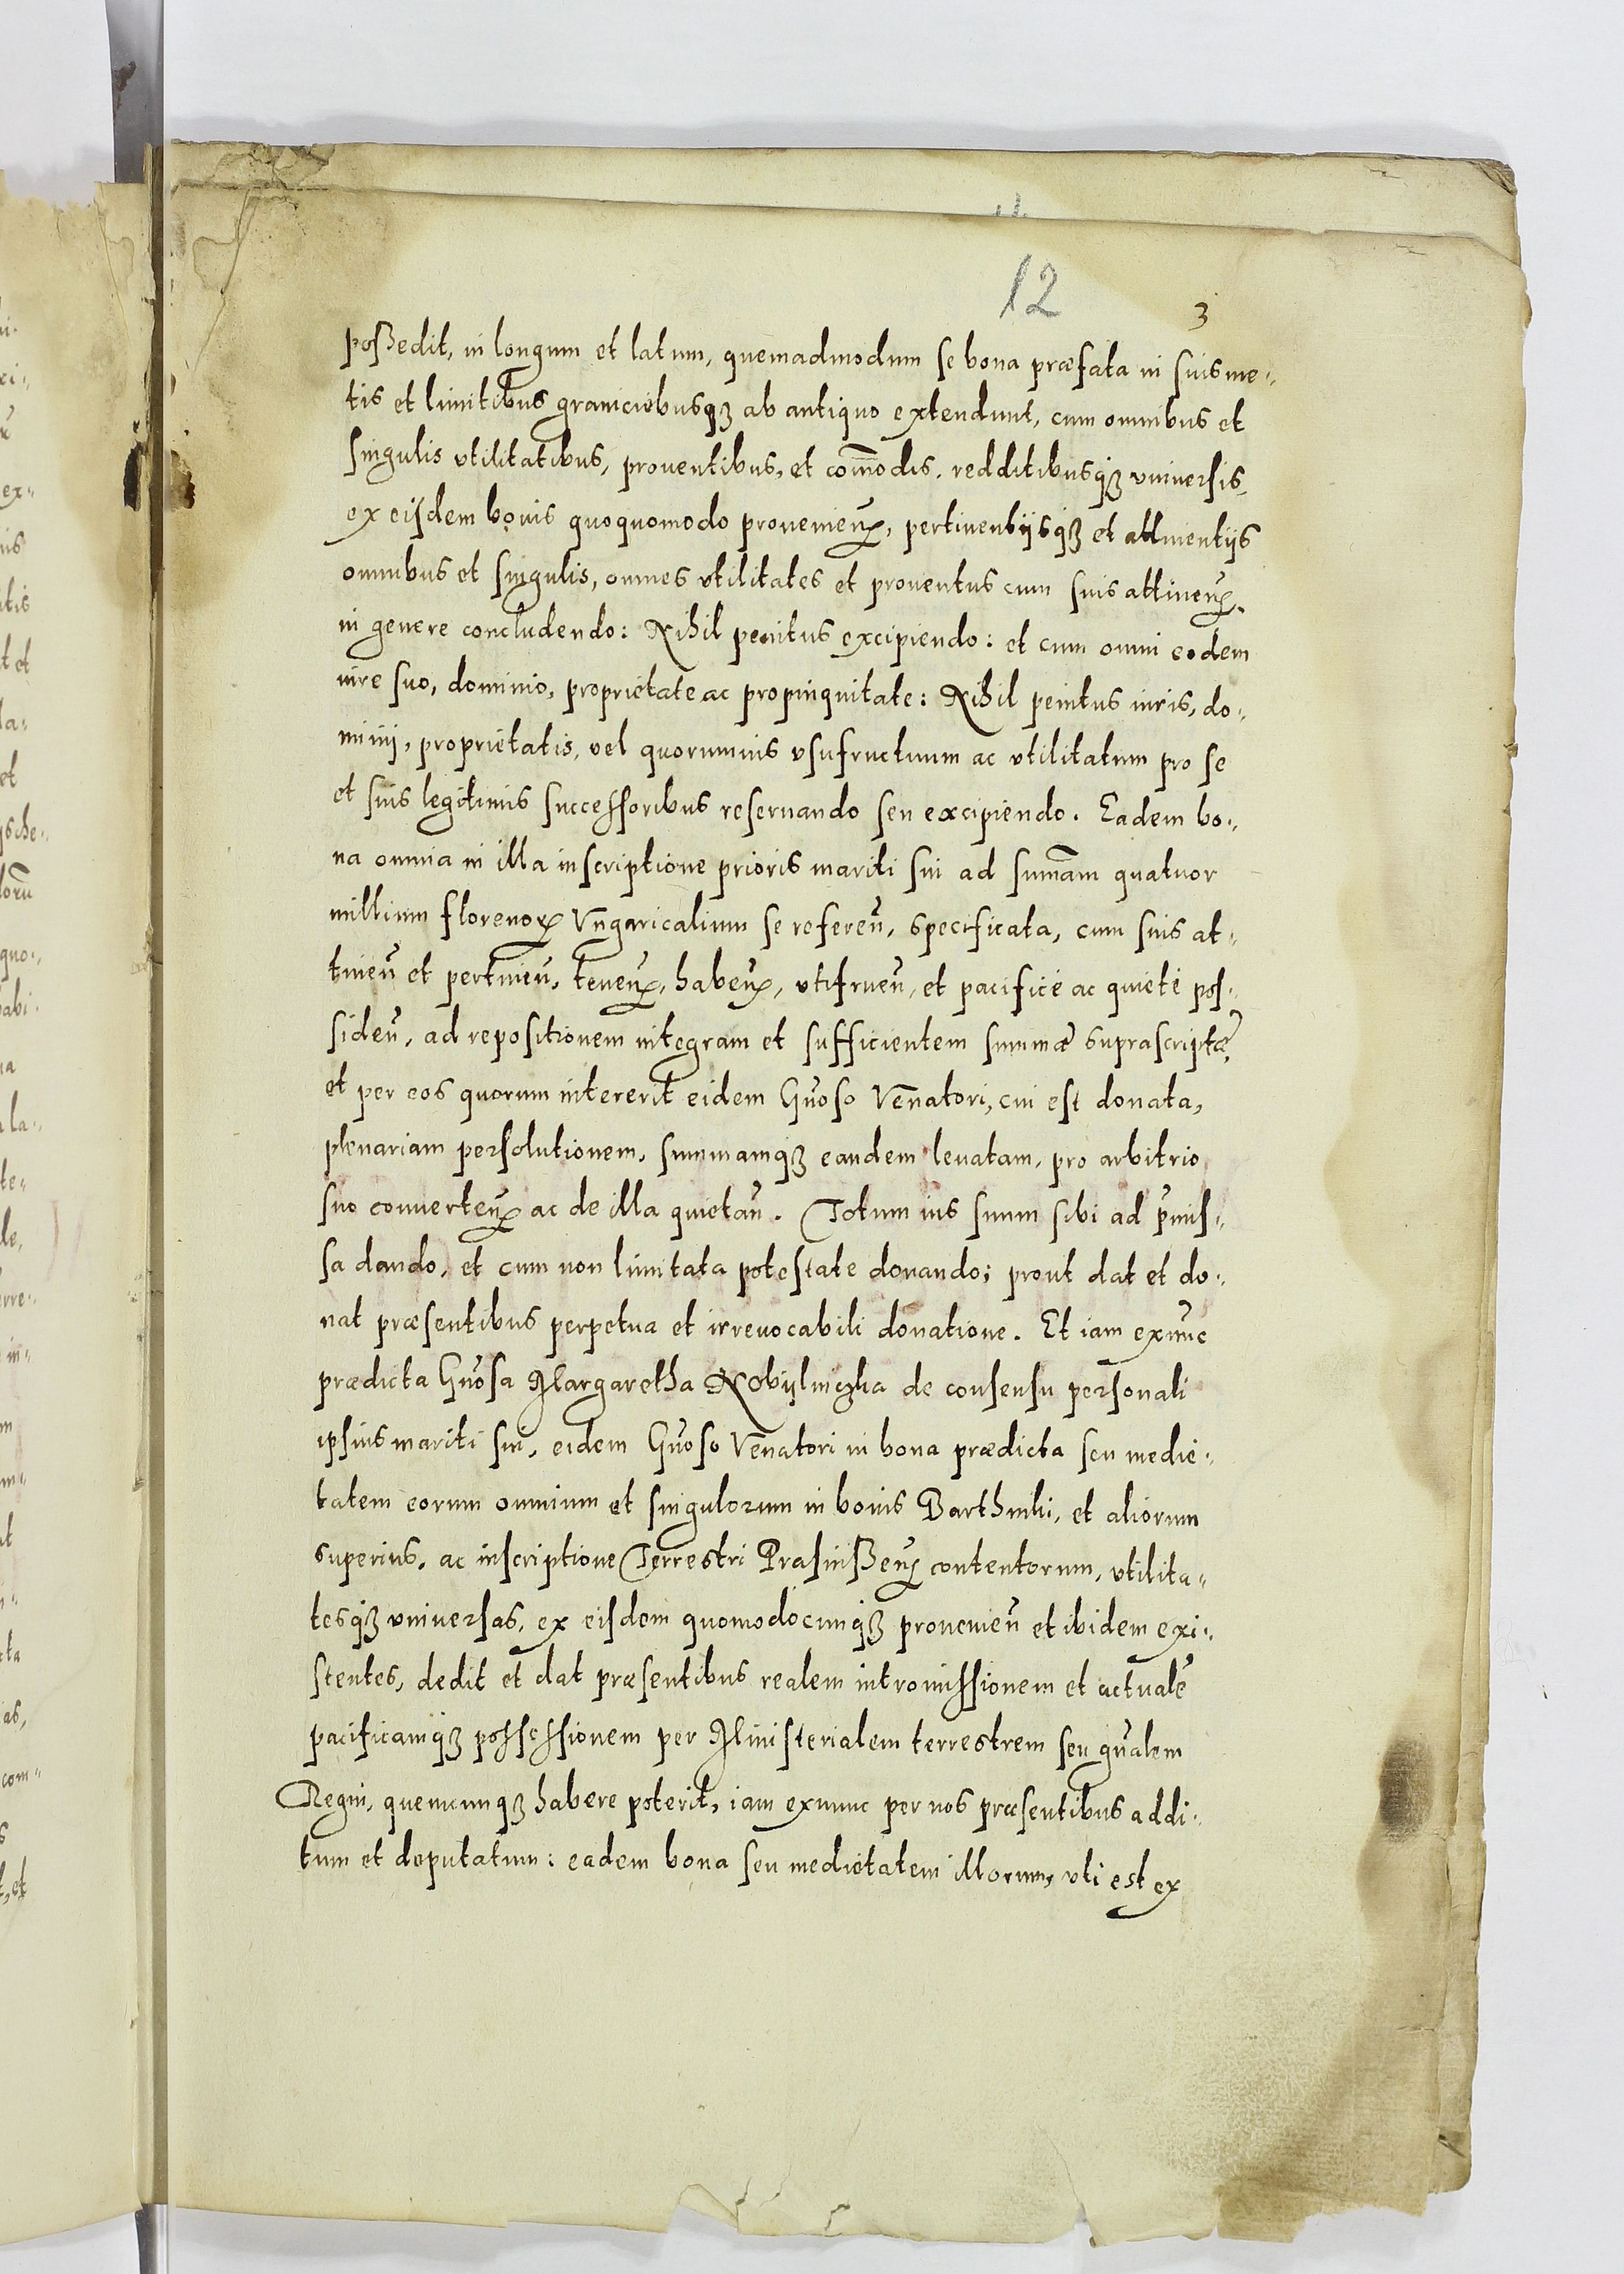 12
3
possedit, in longum et latum, quemadmodum se bona præfata in suis me-
tis et limitibus graniciebusqꝫ ab antiquo extendunt, cum omnibus et
singulis vtilitatibus, prouentibus, et com̄odis, redditibusqꝫ vniuersis,
ex eisdem bonis quoquomodo prouenieñ, pertinentijsqꝫ et attinentijs
omnibus et singulis, omnes vtilitates et prouentus cum suis attineñ.
in genere concludendo: Nihil penitus excipiendo: et cum omni eodem
iure suo, dominio, proprietate ac propinquitate: Nihil penitus iuris, do-
minij, proprietatis, vel quorumuis vsufructuum ac vtilitatum pro se
et suis legitimis successoribus reseruando seu excipiendo. Eadem bo-
na omnia in illa inscriptione prioris mariti sui ad sum̄am quatuor
millium florenoꝝ Vngaricalium se refereñ, specificata, cum suis at-
tineñ et pertineñ, teneñ, habeñ, vtifrueñ, et pacificè ac quietè pos-
sideñ, ad repositionem integram et sufficientem summæ suprascriptæ,
et per eos quorum intererit eidem Gñoso Venatori, cui est donata,
plenariam persolutionem, summamqꝫ eandem leuatam, pro arbitrio
suo conuerteñ ac de illa quietañ. Totum ius suum sibi ad p̄mis-
sa dando, et cum non limitata potestate donando; prout dat et do-
nat præsentibus perpetua et irreuocabili donatione. Et iam exnūc
prædicta Gñosa Margaretha Kobijlniczka de consensu personali
ipsius mariti sui, eidem Gñoso Venatori in bona prædicta seu medie-
tatem eorum omnium et singulorum in bonis Barthniki, et aliorum
superius, ac inscriptione Terrestri Prasnisseñ contentorum, vtilita-
tesqꝫ vniuersas, ex eisdem quomodocunqꝫ prouenieñ et ibidem exi-
stentes, dedit et dat præsentibus realem intromissionem et actualē
pacificamqꝫ possessionem per Ministerialem terrestrem seu gn̄alem
Regni, quemcunqꝫ habere poterit, iam exnunc per nos præsentibus addi-
tum et deputatum: eadem bona seu medietatem illorum, vti est ex